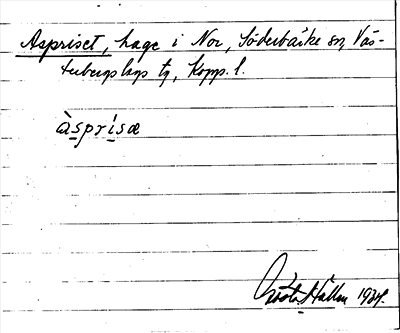 Aspriset, hage i Nor, Söderbärke sn, Väs-
terbergslags tg, Kopp. l.
àsprisæ
Gösta Hallm 1934.